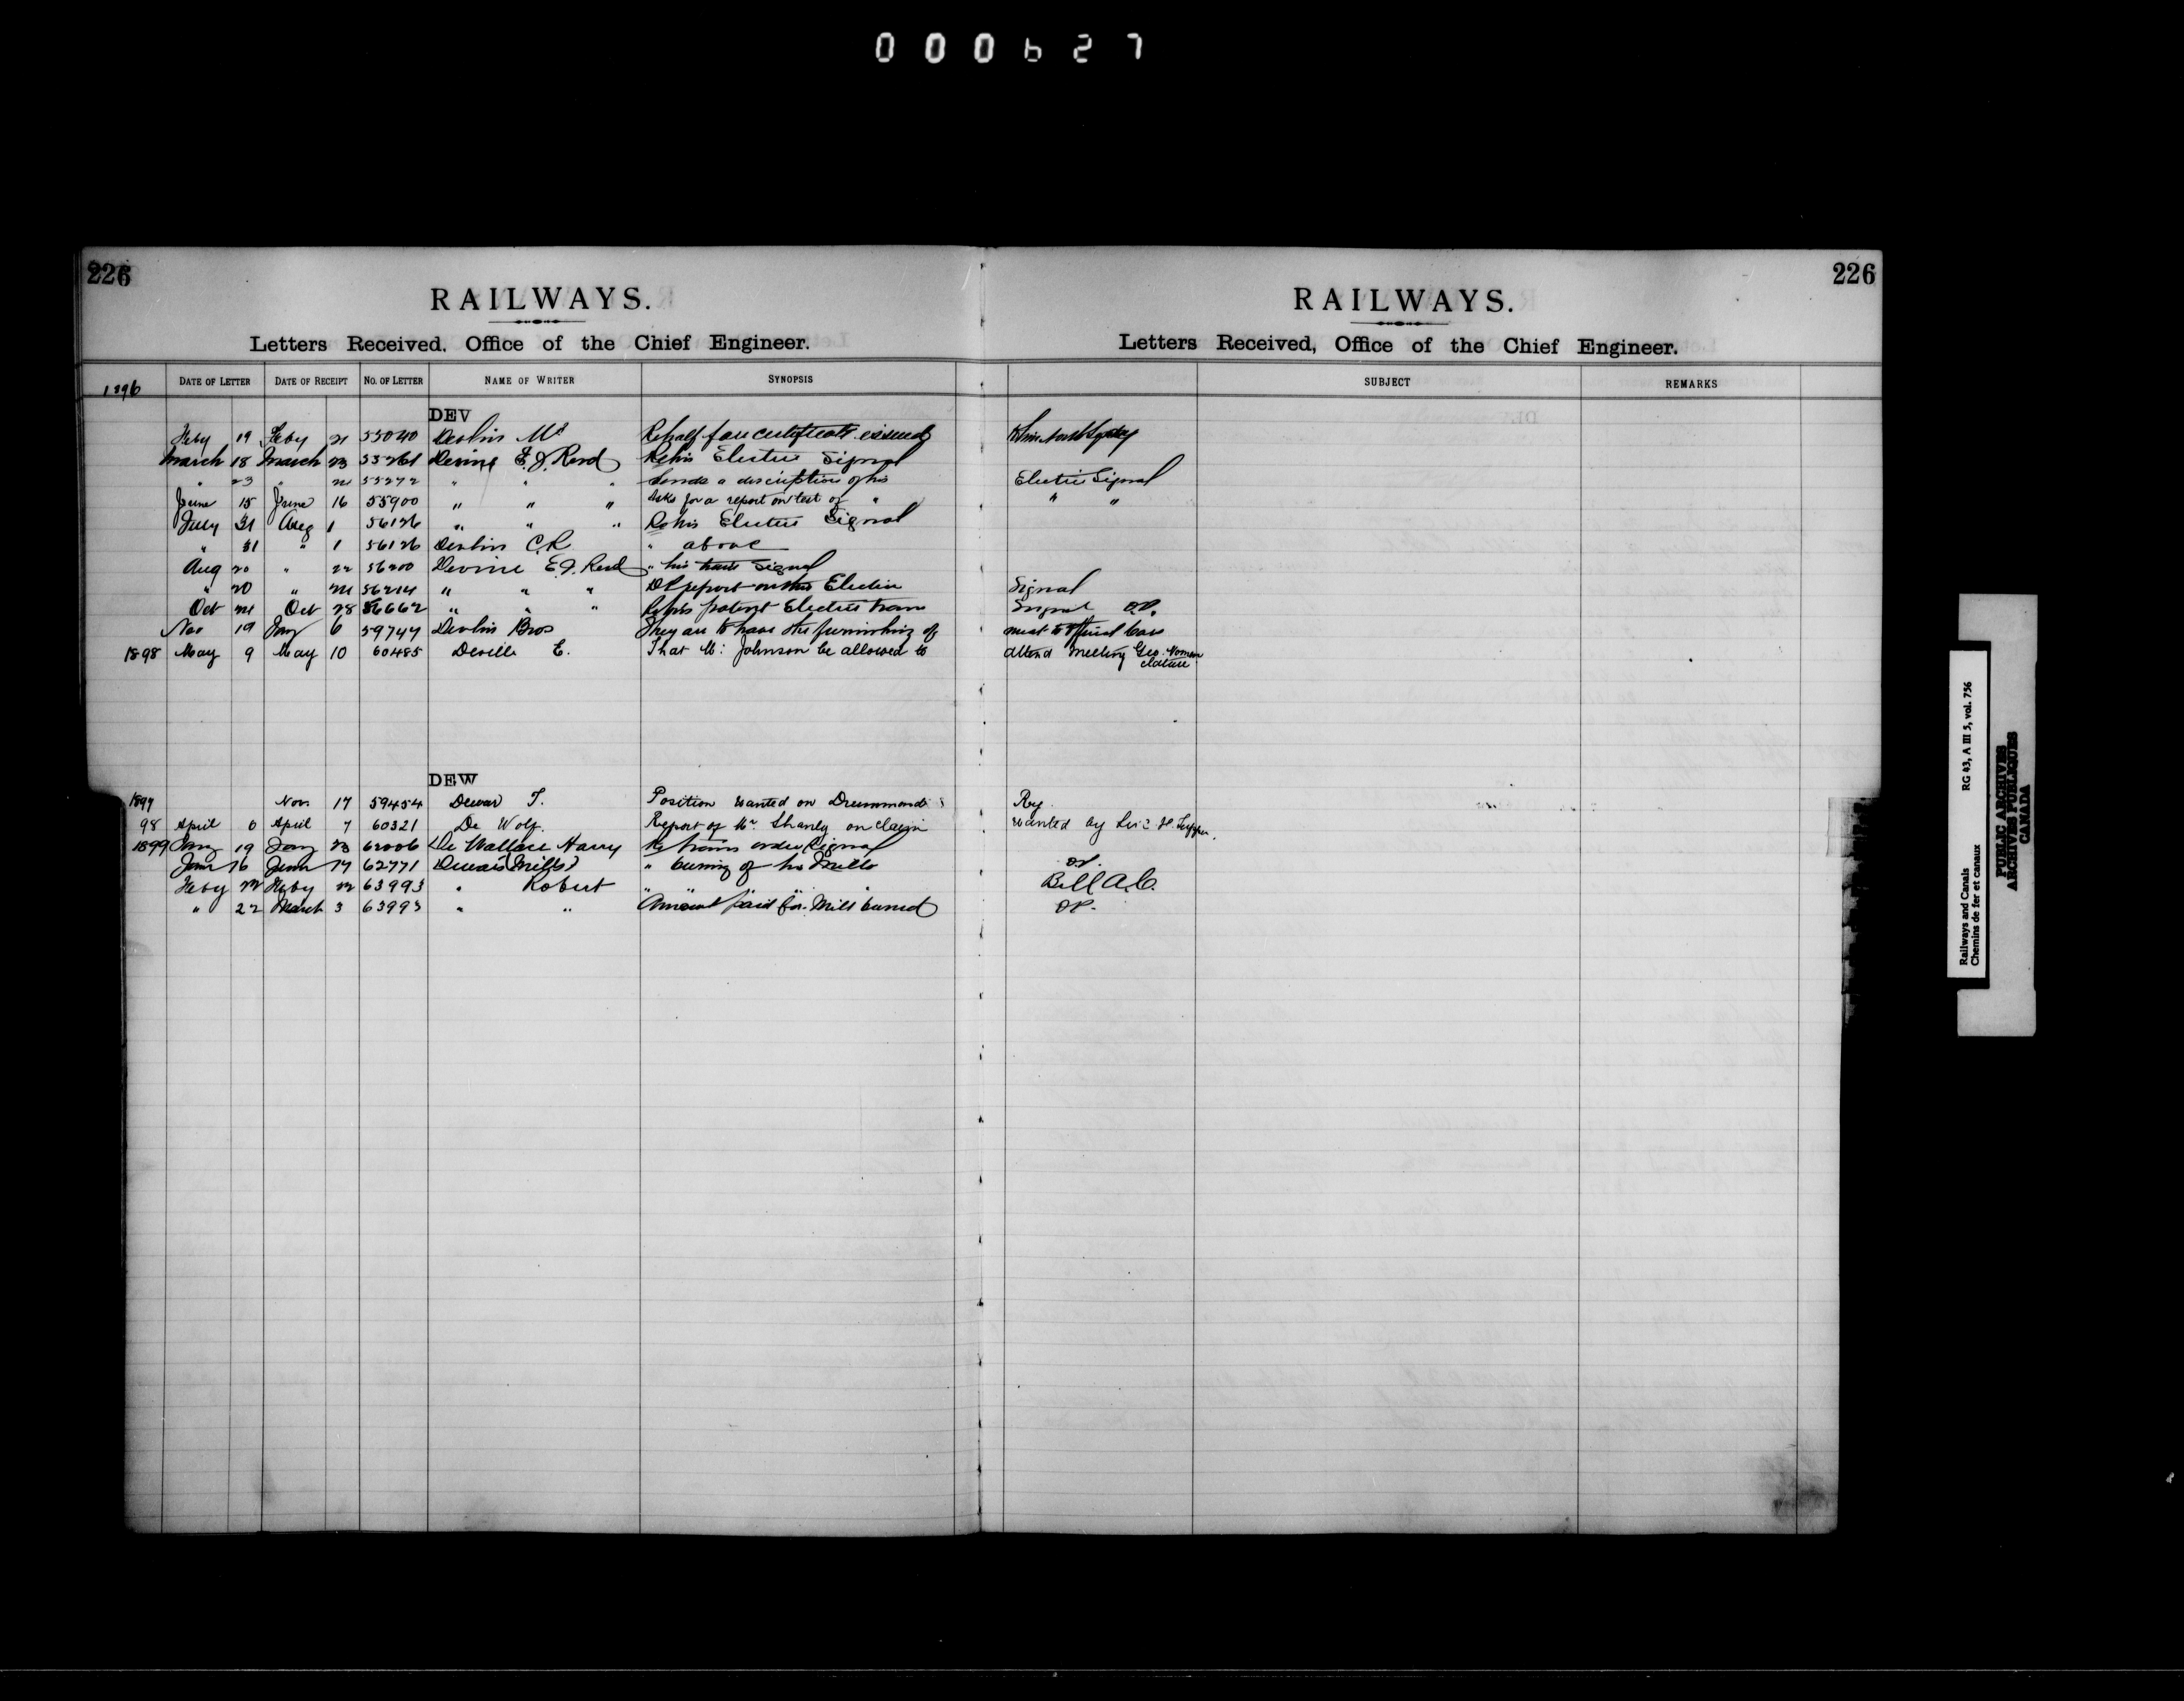 000627
226
RAILWAYS.
Letters Received, Office of the Chief Engineer.
1896 DATE OF LETTER DATE OF RECEIPT NO. OF LETTER NAME OF WRITER SYNOPSIS
DEV
Feby 19 Feby 21 55040 Devlin Mr Re half fare certificate issued
March 18 March 23 55261 Devine E. J. Revd Re his Electric Signal
" 23 " 24 55272 " " " Sends a description of his
June 15 June 16 55900 " " " Asks for a report on test of "
July 31 Aug 1 56126 " " " Re his Electric Signal
" 31 " 1 56126 Devlin C.R. " above
Aug 20 " 22 56200 Devine E.J. Revd " his train Signal
" 20 " 24 56214 " " " DS report on this Electric
Oct 24 Oct 28 56662 " " " Re his patent Electric train
Nov 19 Jany 6 59744 Devlin Bros They are to have the furnishing of
1898 May 9 May 10 60485 Deville E. That Mr: Johnson be allowed to
DEW
1897 Nov. 17 59454 Dewar T. Position wanted on Drummond
98 April 6 April 7 60321 De Wolf. Report of Mr. Shanly on claim
1899 Jany 19 Jany 23 62006 De Wallace Harry Re train order signal
June 16 June 17 62771 Dewar's (Mills) " burning of his Mills
Feby 22 Feby 22 63993 " Robert " " " "
" 22 March 3 63993 " " Amount paid for Mill burned
226
RAILWAYS.
Letters Received, Office of the Chief Engineer.
SUBJECT REMARKS
Electric Signal
" "
Signal
Signal O.P.
meat to official Cars
attend meeting Geo. Nomen
clature
Ry
wanted by Sir C. H. Tupper.
O.P.
Bell A.C.
O.P.
Railways and Canals RG 43, A III 5, vol. 756
Chemins de fer et canaux
PUBLIC ARCHIVES
ARCHIVES PUBLIQUES
CANADA